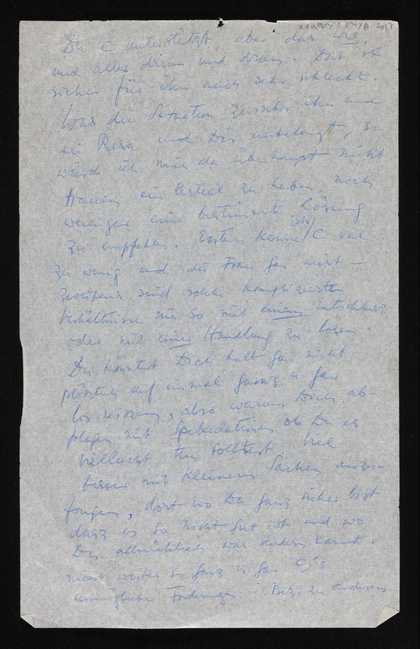 Du C unterstützt, aber das
und alles drum und dran. Das ist
sicher für ihn auch sehr schlecht.
Was die Situation zwischen ihm und
und Dir anbelangt, so
würde ich mir da überhaupt nicht
trauen ein Urteil zu haben, noch
weniger eine bestimmte Lösung
zu empfehlen. Erstens kenne ich C viel
zu wenig und die Frau gar nicht —
zweitens sind solche komplizierten
Verhältnisse nie so mit einem
oder mit einer Handlung zu lösen
Du könntest Dich halt gar nicht
plötzlich auf einmal ganz u gar
los reissen, also warum Dich ab-
plagen mit Spekulationen ob Du es
vielleicht tun solltest. Viel
besser mit kleinen Sachen anzu-
fangen, dort wo Du ganz sicher bist
dass es so nicht gut ist und wo
Du allmählich was ändern kannst.
ganz u gar
unmögliche Forderungen. Bis zu anderen